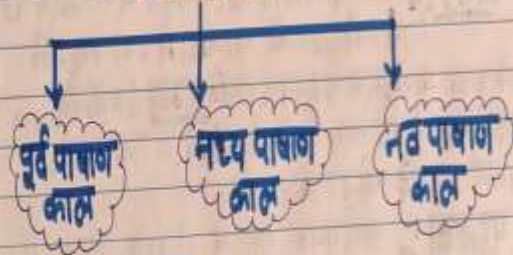 पूर्व पाषाण
काल
मध्य पाषाण
काल
नव पाषाण
काल